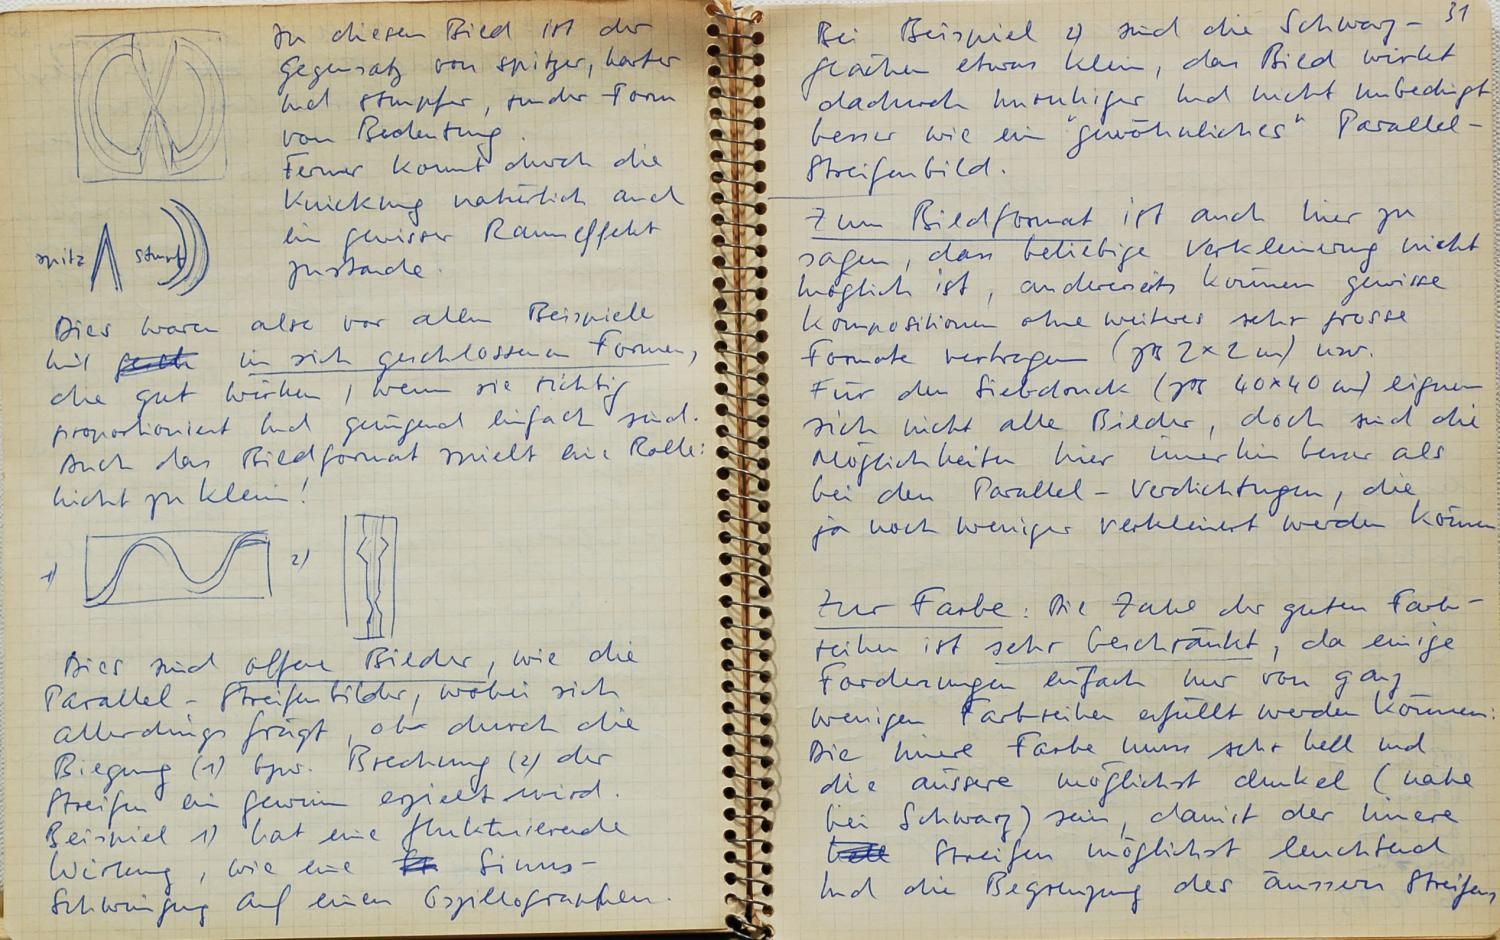 In diesem Bild ist der
Gegensatz von spitzer, harter
und stumpfer, runder Form
von Bedeutung.
Ferner kommt durch die
Knickung natürlich auch
ein gewisser Raumeffekt
zustande.
spitz
stumpf
Dies waren also vor allem Beispiele
mit in sich geschlossenen Formen,
die gut wirken, wenn sie richtig
proportioniert und genügend einfach sind.
Auch das Bildformat spielt eine Rolle:
nicht zu klein!
1)
2)
Dies sind offene Bilder, wie die
Parallel-Streifenbilder, wobei sich
allerdings frägt, ob durch die
Biegung (1) bzw. Brechung (2) der
Streifen ein Gewinn erzielt wird.
Beispiel 1) hat eine fluktuierende
Wirkung, wie eine Sinus-
Schwingung auf einem Oszillographen.
31
Bei Beispiel 2) sind die Schwarz-
flächen etwas klein, das Bild wirkt
dadurch unruhiger und nicht unbedingt
besser wie ein "gewöhnliches" Parallel-
Streifenbild.
Zum Bildformat ist auch hier zu
sagen, dass beliebige Verkleinerung nicht
möglich ist, andererseits können gewisse
Kompositionen ohne weiteres sehr grosse
Formate vertragen (zB 2×2 m) usw.
Für den Siebdruck (zB 40×40 cm) eignen
sich nicht alle Bilder, doch sind die
Möglichkeiten hier immerhin besser als
bei den Parallel-Verdichtungen, die
ja noch weniger verkleinert werden können
Zur Farbe: Die Zahl der guten Farb-
reihen ist sehr beschränkt, da einige
Forderungen einfach nur von ganz
wenigen Farbreihen erfüllt werden können:
Die innere Farbe muss sehr hell und
die äussere möglichst dunkel (nahe
bei Schwarz) sein, damit der innere
Streifen möglichst leuchtend
und die Begrenzung des äussern Streifens